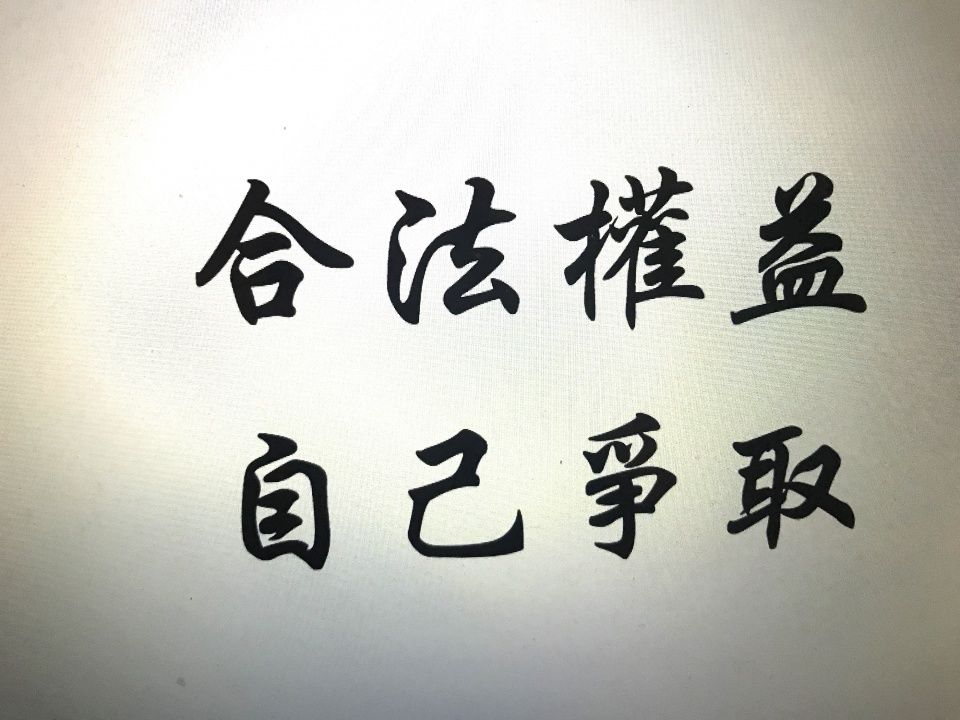 合法權益
自己爭取